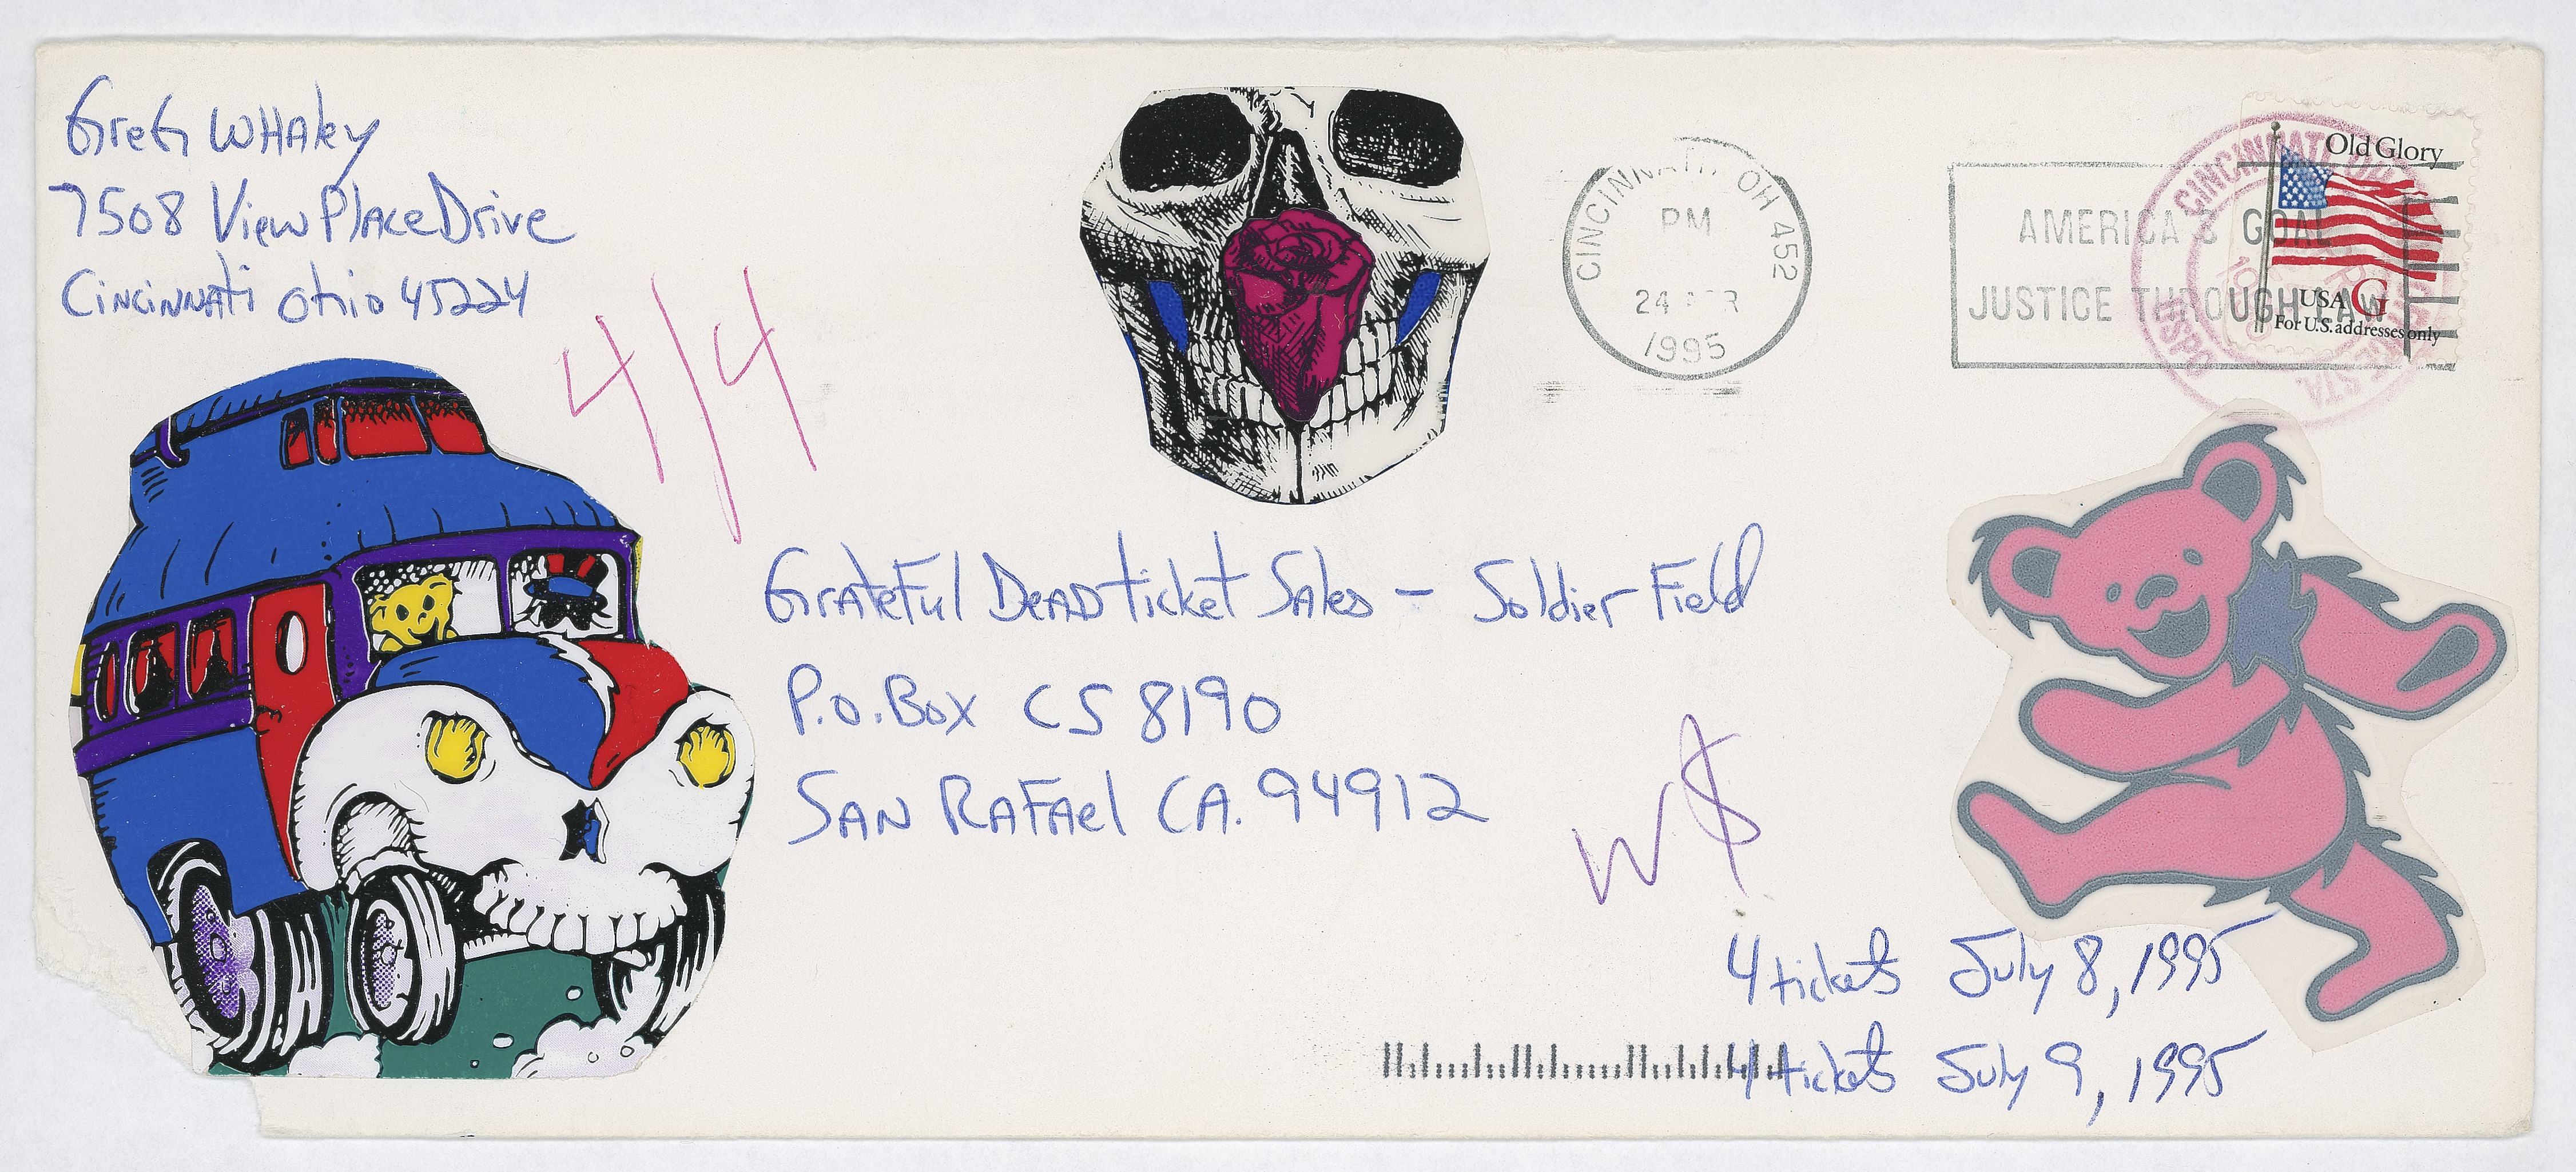 GreG WHAley
7508 View PlAce Drive
CiNciNNAti Ohio 45224
4/4
CINCINNATI OH 452
PM
24 APR
1995
AMERICA'S GOAL
JUSTICE THROUGH LAW
Old Glory
USA G
For U.S. addresses only
CINCINNATI
USPO
STA.
GrAteFul DeAD ticket SAles - Soldier Field
P.O. Box CS 8190
SAN RAFAel CA. 94912
W$
4 tickets July 8, 1995
4 tickets July 9, 1995